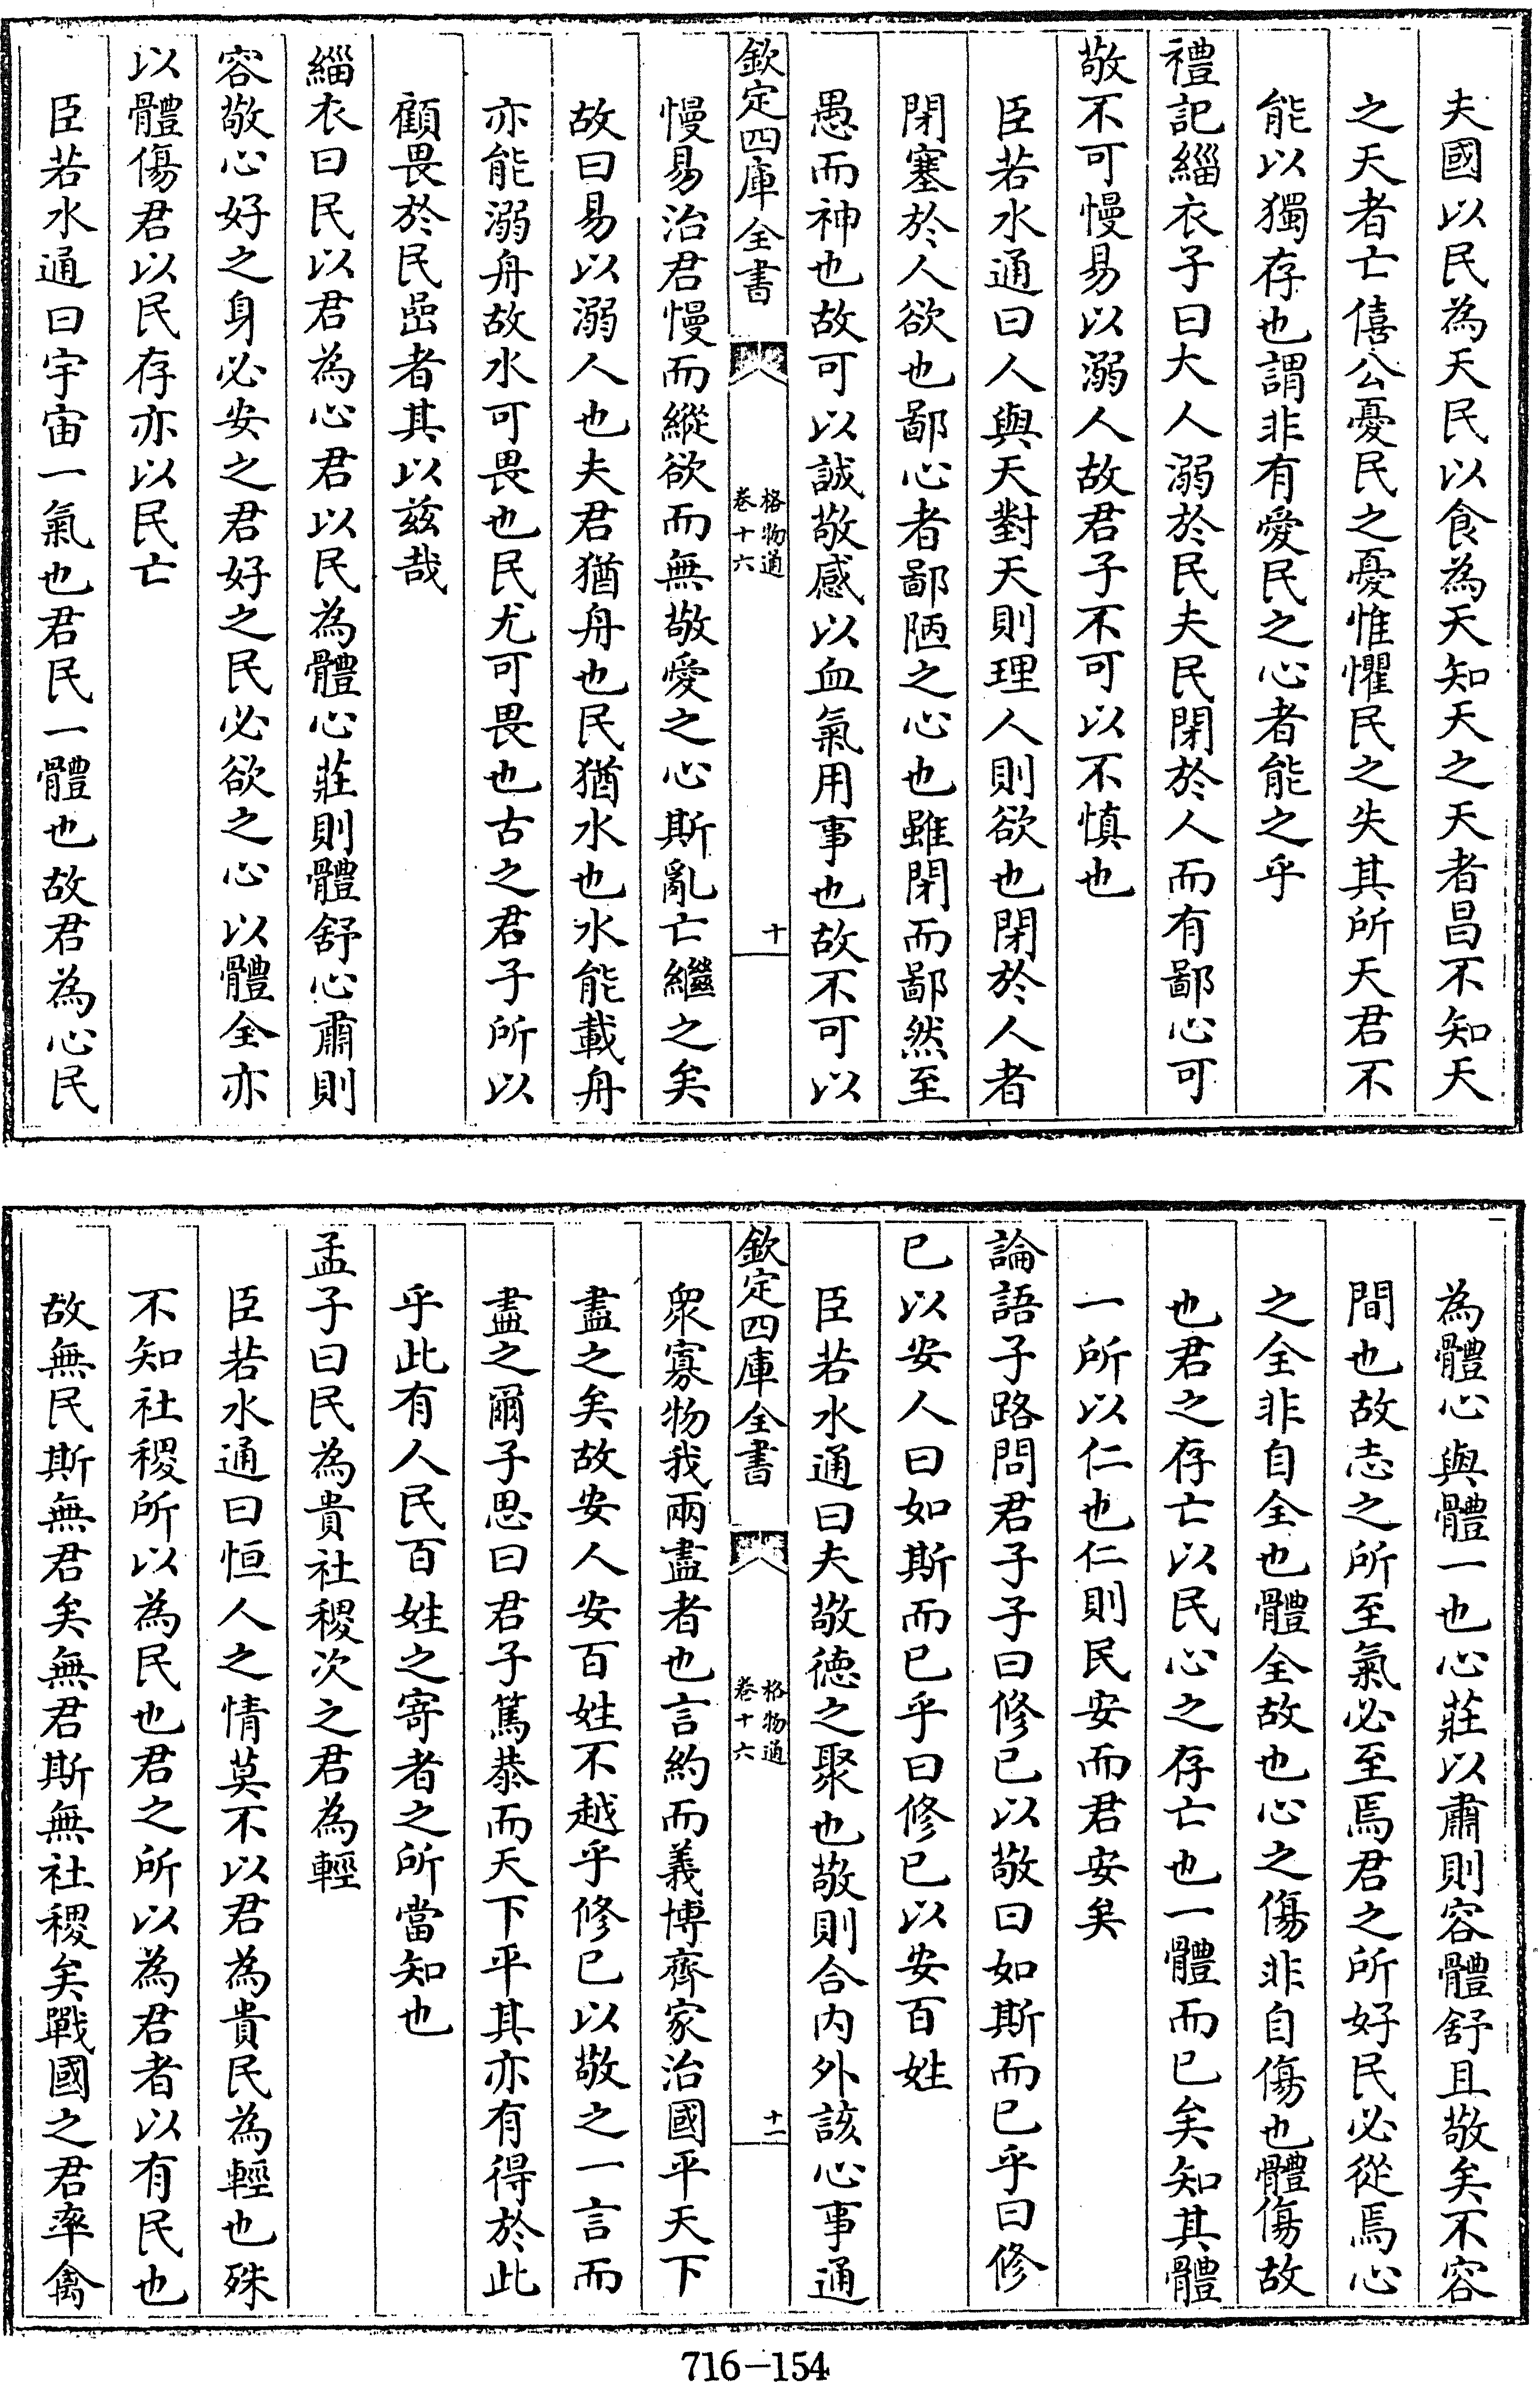 夫國以民為天民以食為天知天之天者昌不知天
之天者亡僖公憂民之憂惟懼民之失其所天君不
能以獨存也謂非有愛民之心者能之乎
禮記緇衣子曰大人溺於民夫民閉於人而有鄙心可
敬不可慢易以溺人故君子不可以不慎也
臣若水通曰人與天對天則理人則欲也閉於人者
閉塞於人欲也鄙心者鄙陋之心也雖閉而鄙然至
愚而神也故可以誠敬感以血氣用事也故不可以
欽定四庫全書
格物通
卷十六
十
慢易治君慢而縱欲而無敬愛之心斯亂亡繼之矣
故曰易以溺人也夫君猶舟也民猶水也水能載舟
亦能溺舟故水可畏也民尤可畏也古之君子所以
顧畏於民嵒者其以兹哉
緇衣曰民以君為心君以民為體心莊則體舒心肅則
容敬心好之身必安之君好之民必欲之心以體全亦
以體傷君以民存亦以民亡
臣若水通曰宇宙一氣也君民一體也故君為心民
為體心與體一也心莊以肅則容體舒且敬矣不容
間也故志之所至氣必至焉君之所好民必從焉心
之全非自全也體全故也心之傷非自傷也體傷故
也君之存亡以民心之存亡也一體而已矣知其體
一所以仁也仁則民安而君安矣
論語子路問君子子曰修已以敬曰如斯而已乎曰修
已以安人曰如斯而已乎曰修已以安百姓
臣若水通曰夫敬德之聚也敬則合内外該心事通
欽定四庫全書
格物通
卷十六
十一
衆寡物我兩盡者也言約而義博齊家治國平天下
盡之矣故安人安百姓不越乎修已以敬之一言而
盡之爾子思曰君子篤恭而天下平其亦有得於此
乎此有人民百姓之寄者之所當知也
孟子曰民為貴社稷次之君為輕
臣若水通曰恒人之情莫不以君為貴民為輕也殊
不知社稷所以為民也君之所以為君者以有民也
故無民斯無君矣無君斯無社稷矣戰國之君率禽
716-154